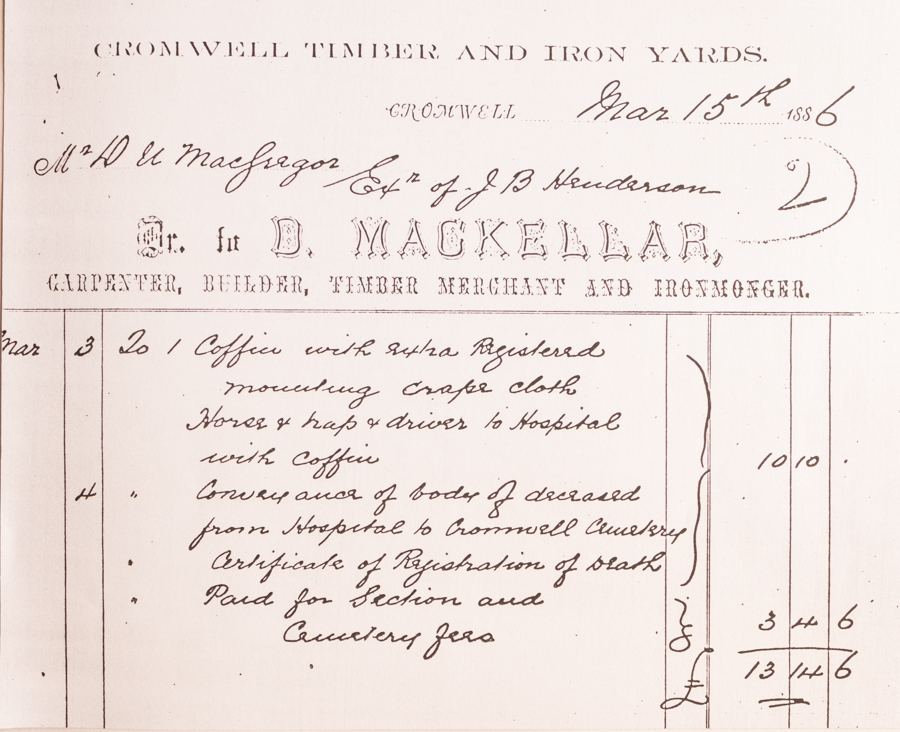 CROMWELL TIMBER AND IRON YARDS.
CROMWELL Mar 15th 1886
Mr D U MacGregor Exr of J B Henderson
2
Dr. to D. MACKELLAR,
CARPENTER, BUILDER, TIMBER MERCHANT AND IRONMONGER.
Mar 3 To 1 Coffin with extra Registered
mounting crape cloth
Horse & trap & driver to Hospital
with coffin 10 10 .
4 " Conveyance of body of deceased
from Hospital to Cromwell Cemetery
" Certificate of Registration of Death
" Paid for Section and 3 4 6
Cemetery fees
£ 13 14 6